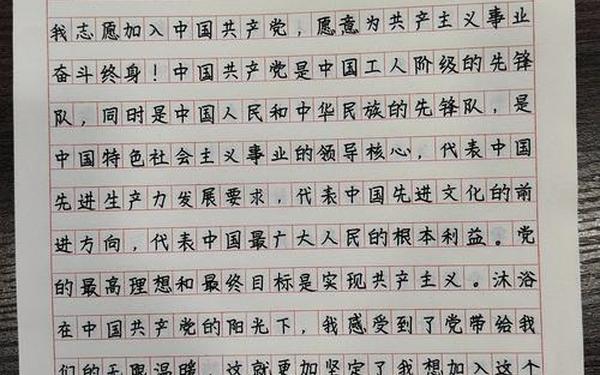 我志愿加入中国共产党，愿意为共产主义事业
奋斗终身！中国共产党是中国工人阶级的先锋
队，同时是中国人民和中华民族的先锋队，是
中国特色社会主义事业的领导核心，代表中国
先进生产力发展要求，代表中国先进文化的前
进方向，代表中国最广大人民的根本利益。党
的最高理想和最终目标是实现共产主义。沐浴
在中国共产党的阳光下，我感受到了党带给我
们的无限温暖，这就更加坚定了我想加入这个